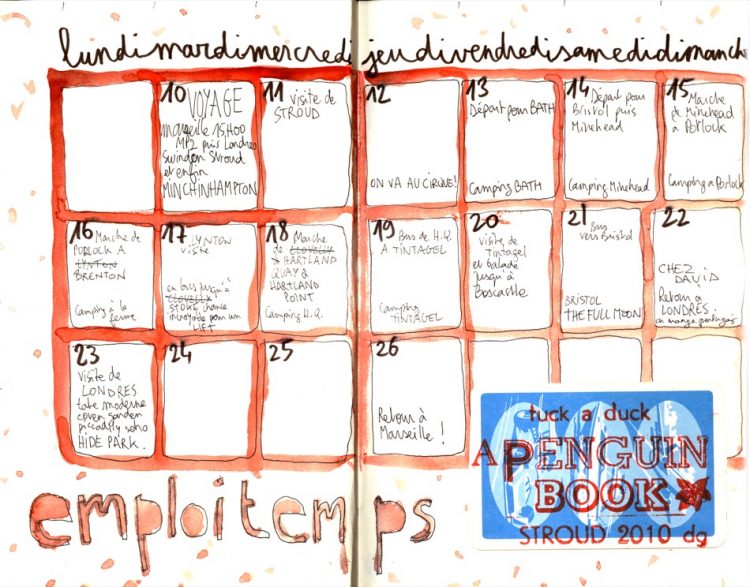 lundi mardi mercredi jeudi vendredi samedi dimanche
10
VOYAGE
marseille 15H00
MP2 puis Londres
swindon Stroud
et enfin
MINCHINHAMPTON
11 visite de
STROUD
12
ON VA AU CIRQUE!
13
Départ pour BATH
Camping BATH
14 Départ pour
Bristol puis
Minehead
Camping Minehead
15 Marche
de Minehead
à Porlock
Camping à Porlock
16 Marche de
PORLOCK A
LYNTON
BRENTON
Camping à la
ferme
17 LYNTON
visite
en bus jusqu'à
CLOVELLY
STOKE chance
incroyable pour un
18 Marche
de CLOVELLY
à HARTLAND
QUAY à
HARTLAND
POINT
Camping H.Q.
19 Bus de H.Q.
A TINTAGEL
Camping
TINTAGEL
20
visite de
tintagel
et balade
jusqu'à
Boscastle
21 Bus
vers Bristol
BRISTOL
THE FULL MOON
22
CHEZ
DAVID
Retour à
LONDRES.
on mange portugais
23
visite de
LONDRES
tate moderne
coven garden
piccadilly soho
HIDE PARK.
24
25
26
Retour à
Marseille !
emploitemps
tuck a duck
A PENGUIN
BOOK
STROUD 2010 dg